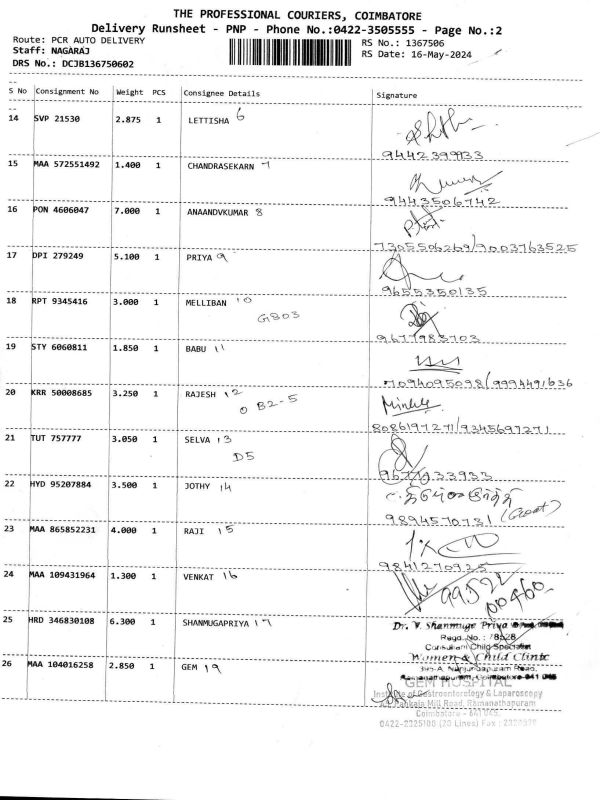 THE PROFESSIONAL COURIERS, COIMBATORE
Delivery Runsheet - PNP - Phone No.:0422-3505555 - Page No.:2
Route: PCR AUTO DELIVERY
Staff: NAGARAJ
DRS No.: DCJB136750602
RS No.: 1367506
RS Date: 16-May-2024
S No Consignment No Weight PCS Consignee Details Signature
14 SVP 21530 2.875 1 LETTISHA 6
9442399933
15 MAA 572551492 1.400 1 CHANDRASEKARN 7
9443506742
16 PON 4606047 7.000 1 ANAANDVKUMAR 8
7305506269/9003763525
17 DPI 279249 5.100 1 PRIYA 9
9655350135
18 RPT 9345416 3.000 1 MELLIBAN 10
G803
9677983703
19 STY 6060811 1.850 1 BABU 11
7094095098/9994491636
20 KRR 50008685 3.250 1 RAJESH 12
B2-5
8086197271/9345697271
21 TUT 757777 3.050 1 SELVA 13
D5
22 HYD 95207884 3.500 1 JOTHY 14
9894570731
23 MAA 865852231 4.000 1 RAJI 15
9841270925
24 MAA 109431964 1.300 1 VENKAT 16
99522
00460
25 HRD 346830108 6.300 1 SHANMUGAPRIYA 17
Dr. V. Shanmuga Priya
Regd. No. : 78528
Consultant Child Specialist
Women & Child Clinic
26 MAA 104016258 2.850 1 GEM 19
GEM HOSPITAL
Institute of Gastroenterology & Laparoscopy
Pankaja Mill Road, Ramanathapuram
Coimbatore - 641 045.
0422-2325100 (20 Lines) Fax :